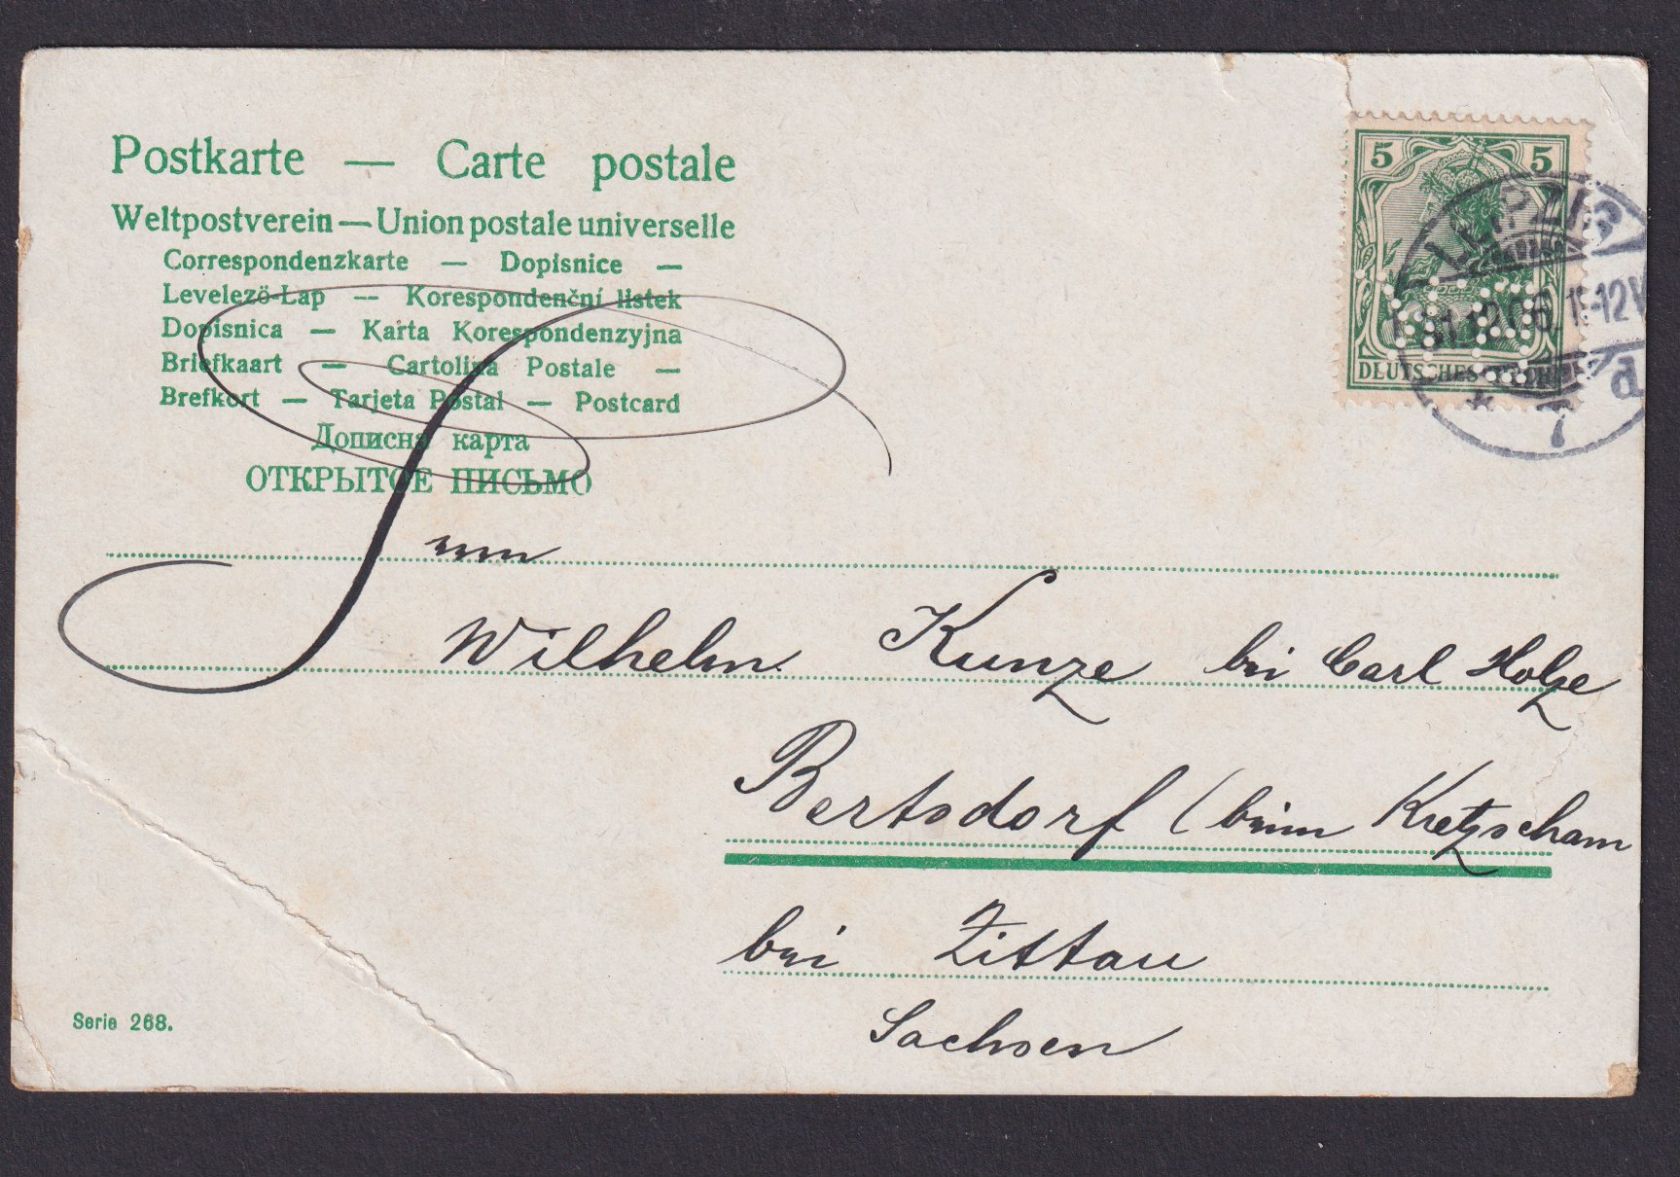 Postkarte — Carte postale
Weltpostverein — Union postale universelle
Correspondenzkarte — Dopisnice —
Levelezö-Lap — Korespondenční listek
Dopisnica — Karta Korespondenzyjna
Briefkaart — Cartolina Postale —
Brefkort — Tarjeta Postal — Postcard
Дописна карта
ОТКРЫТОЕ ПИСЬМО
5 5
DEUTSCHES REICH
LEIPZIG
* 7 d
Wilhelm Kunze bei Carl Holze
Bertsdorf (beim Kretzscham
bei Zittau
Sachsen
Serie 268.